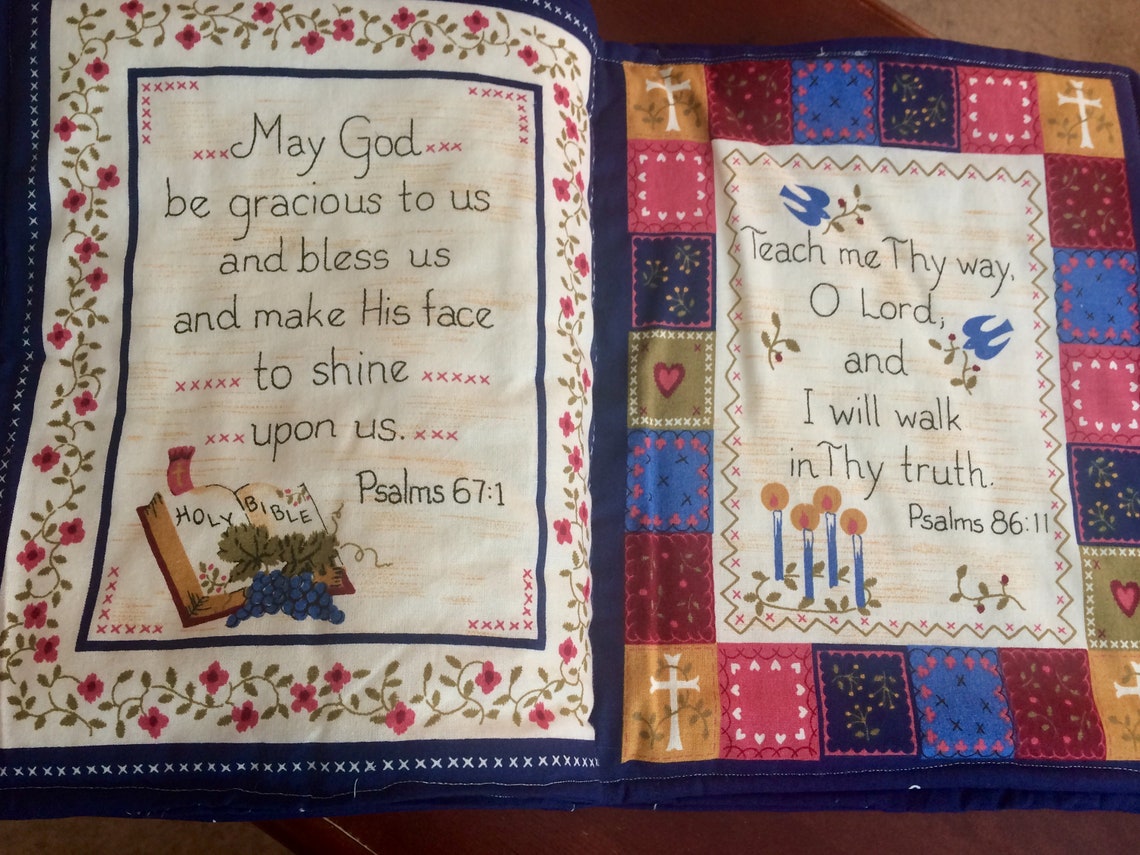 May God
be gracious to us
and bless us
and make His face
to shine
upon us.
Psalms 67:1
HOLY BIBLE
Teach me Thy way,
O Lord,
and
I will walk
in Thy truth.
Psalms 86:11